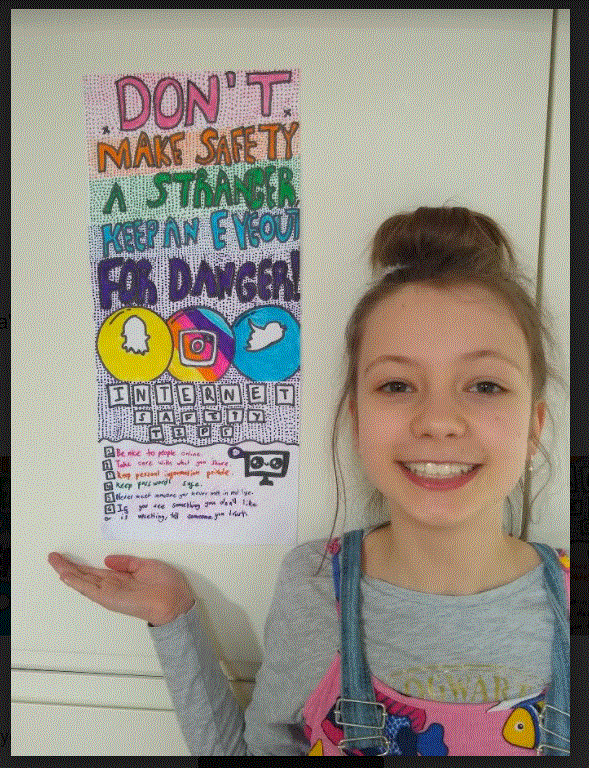 DON'T
MAKE SAFETY
A STRANGER,
KEEP AN EYEOUT
FOR DANGER!
INTERNET
SAFTIY
TIPS
Be nice to people online.
Take care with what you share
Keep personal information private.
Keep passwords safe.
Never meet someone you never met in real life.
If you see something you don't like
or is upsetting, tell someone you trust.